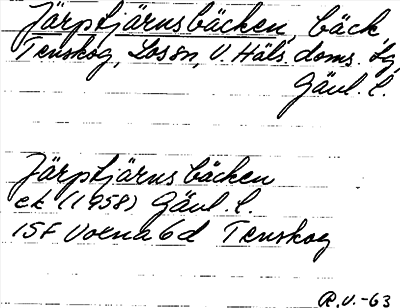 Järptjärnsbäcken, bäck,
Tenskog, Los sn, V. Häls. doms. sg,
Gävl. l.
Järptjärnsbäcken
ek (1958) Gävl l.
15F Voxna 6d Tenskog
R.V.-63